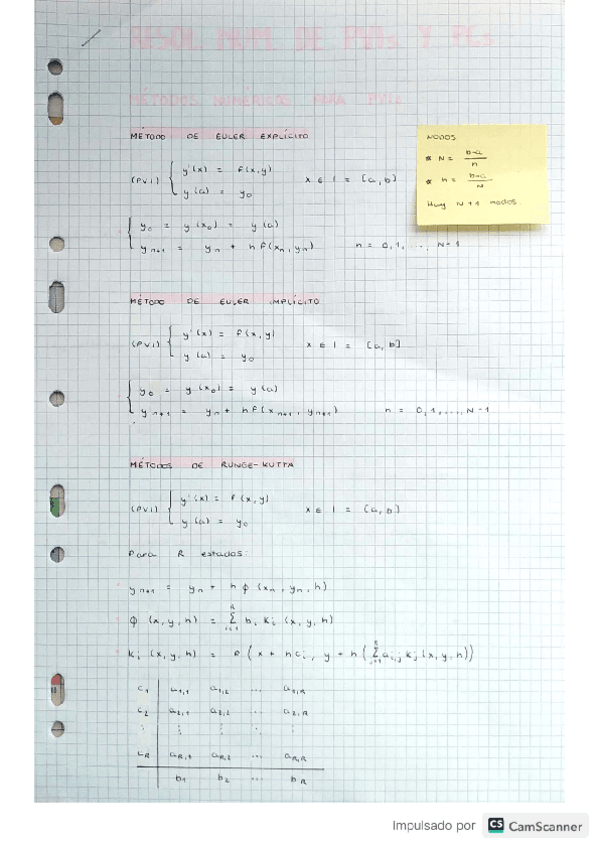 RESOL NUM. DE PVIs Y PCs
MÉTODOS NUMÉRICOS PARA PVIs
MÉTODO DE EULER EXPLÍCITO
(PVI) { y'(x) = f(x,y)
y(a) = y₀
x ∈ I = [a,b]
NODOS
* N = b-a / h
* h = b-a / N
Hay N+1 nodos.
{ y₀ = y(x₀) = y(a)
yₙ₊₁ = yₙ + h f(xₙ, yₙ) n = 0,1,..., N-1
MÉTODO DE EULER IMPLÍCITO
(PVI) { y'(x) = f(x,y)
y(a) = y₀
x ∈ I = [a,b]
{ y₀ = y(x₀) = y(a)
yₙ₊₁ = yₙ + h f(xₙ₊₁, yₙ₊₁) n = 0,1,...,N-1
MÉTODOS DE RUNGE-KUTTA
(PVI) { y'(x) = f(x,y)
y(a) = y₀
x ∈ I = [a,b]
Para R estados:
yₙ₊₁ = yₙ + h ϕ(xₙ, yₙ, h)
ϕ(x,y,h) = Σ_{i=1}^{R} bᵢ kᵢ(x,y,h)
kᵢ(x,y,h) = f(x + hcᵢ, y + h(Σ_{j=1}^{R} aᵢ,ⱼ kⱼ(x,y,h)))
c₁ | a₁,₁ a₁,₂ ... a₁,R
c₂ | a₂,₁ a₂,₂ ... a₂,R
⋮ | ⋮ ⋮ ⋮ ⋮
c_R | a_R,₁ a_R,₂ ... a_R,R
| b₁ b₂ ... b_R
Impulsado por CS CamScanner